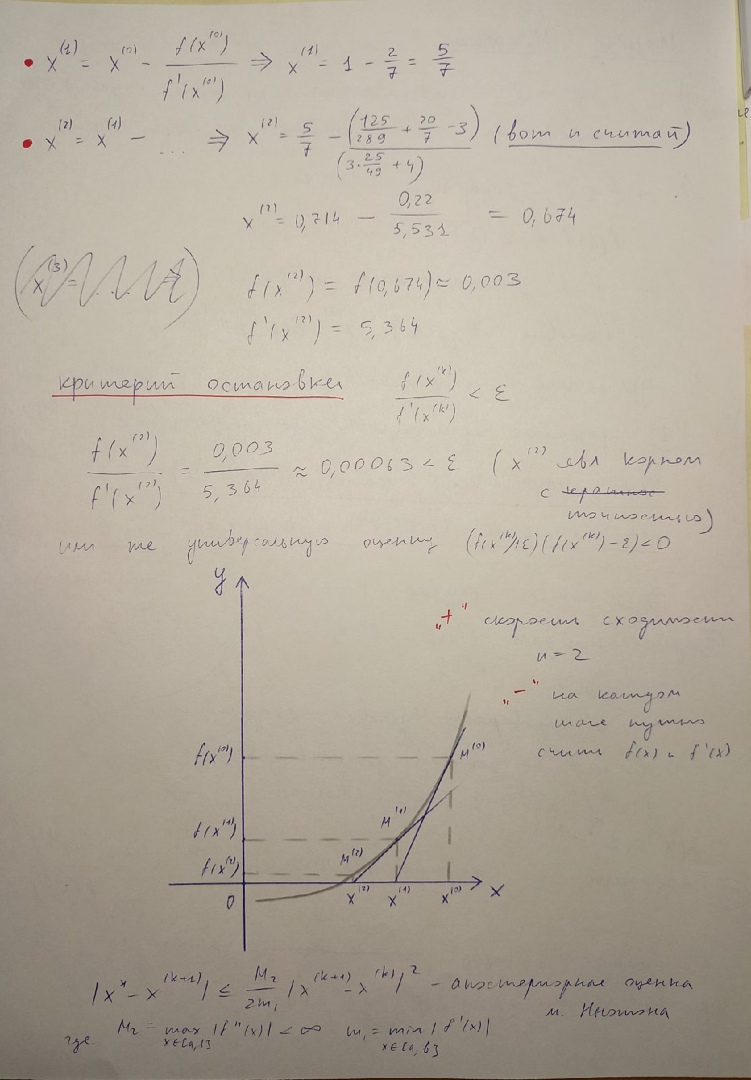 • x⁽¹⁾ = x⁽⁰⁾ - f(x⁽⁰⁾) / f'(x⁽⁰⁾) ⇒ x⁽¹⁾ = 1 - 2/7 = 5/7
• x⁽²⁾ = x⁽¹⁾ - ... ⇒ x⁽²⁾ = 5/7 - (125/289 + 20/7 - 3) / (3·25/49 + 4) (вот и считай)
x⁽²⁾ = 0,714 - 0,22 / 5,531 = 0,674
f(x⁽²⁾) = f(0,674) ≈ 0,003
f'(x⁽²⁾) = 5,364
критерий остановки f(x⁽ᵏ⁾) / f'(x⁽ᵏ⁾) < ε
f(x⁽²⁾) / f'(x⁽²⁾) = 0,003 / 5,364 ≈ 0,00063 < ε (x⁽²⁾ явл корнем
с
точностью)
или же универсальную оценку (f(x⁽ᵏ⁾)+ε)(f(x⁽ᵏ⁾)-ε)<0
y
„+" скорость сходимости
n = 2
„-" на каждом
шаге нужно
считать f(x) и f'(x)
f(x⁽⁰⁾)
M⁽⁰⁾
f(x⁽¹⁾)
M⁽¹⁾
f(x⁽²⁾)
M⁽²⁾
0 x⁽²⁾ x⁽¹⁾ x⁽⁰⁾ x
|x* - x⁽ᵏ⁺¹⁾| ≤ M₂ / 2m₁ |x⁽ᵏ⁺¹⁾ - x⁽ᵏ⁾|² - апостериорная оценка
м. Ньютона
где M₂ = max |f''(x)| < ∞ m₁ = min |f'(x)|
x∈[a,b] x∈[a,b]